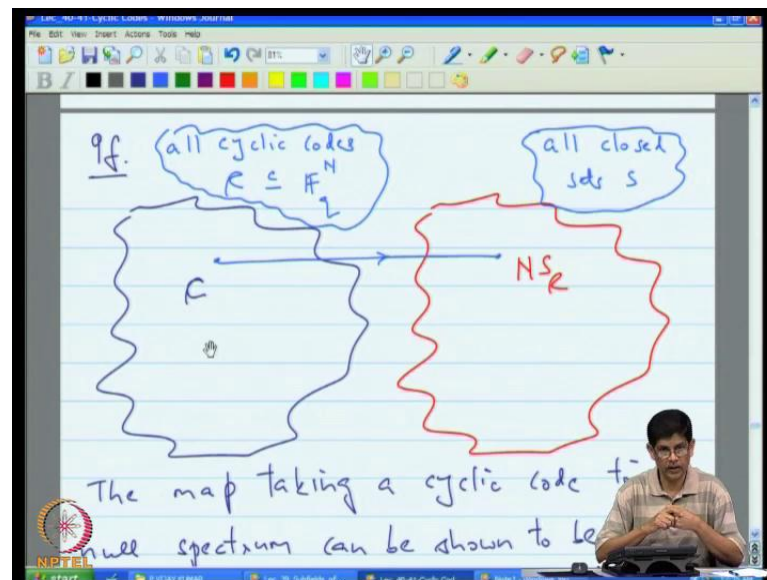 Lec_40-41-Cyclic Codes - Windows Journal
File Edit View Insert Actions Tools Help
81%
B I
Pf. all cyclic codes
C ⊆ F_q^N
all closed
sets S
C
NS_C
The map taking a cyclic code
null spectrum can be shown to be
NPTEL
start
Lec_40-41-Cyclic Cod...